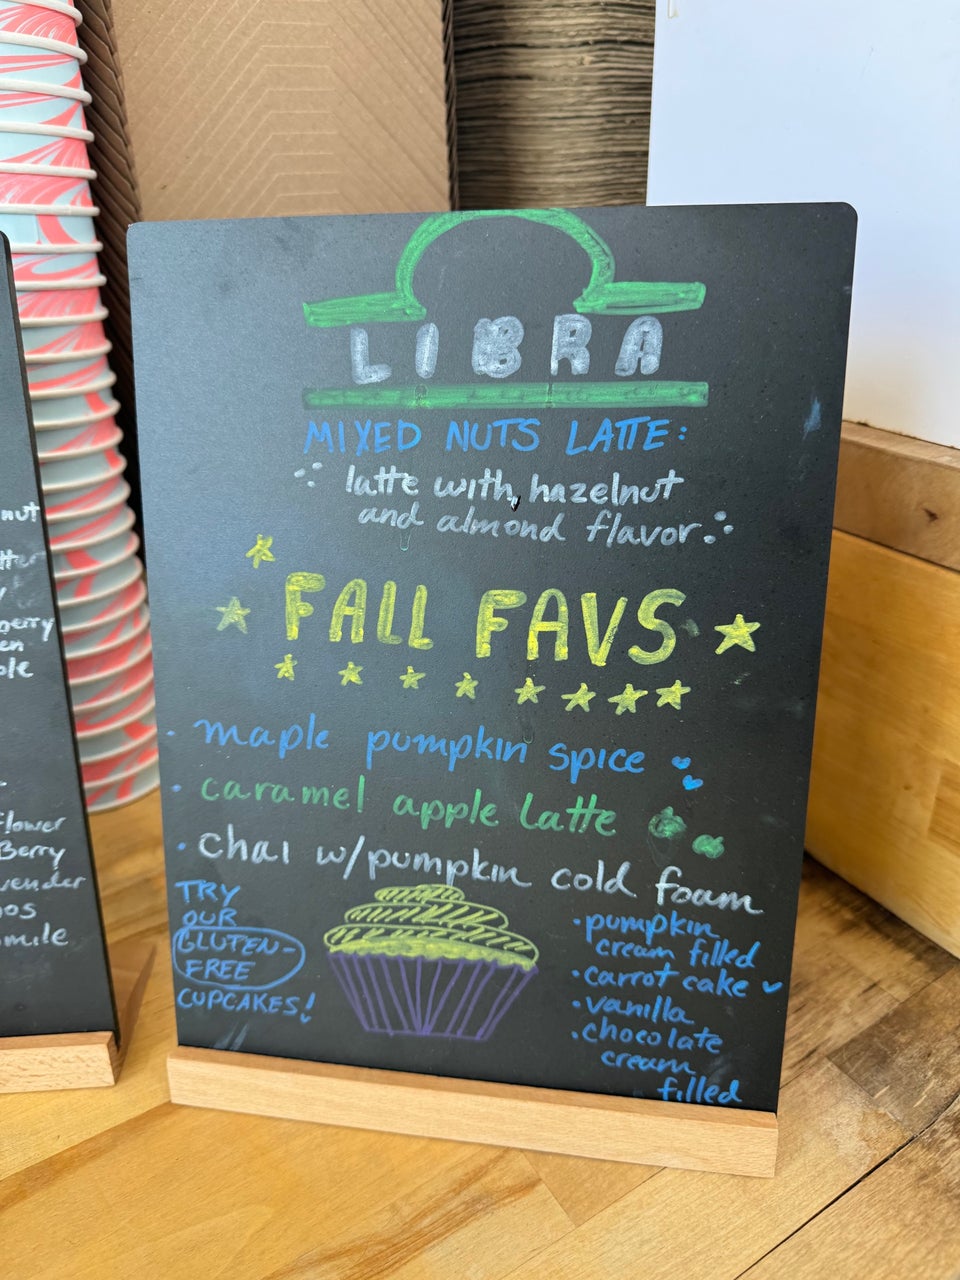 LIBRA
MIXED NUTS LATTE:
latte with hazelnut
and almond flavor
FALL FAVS
• maple pumpkin spice
• caramel apple latte
• chai w/pumpkin cold foam
TRY
OUR
GLUTEN-
FREE
CUPCAKES!
• pumpkin
cream filled
• carrot cake
• vanilla
• chocolate
cream
filled
nut
berry
flower
Berry